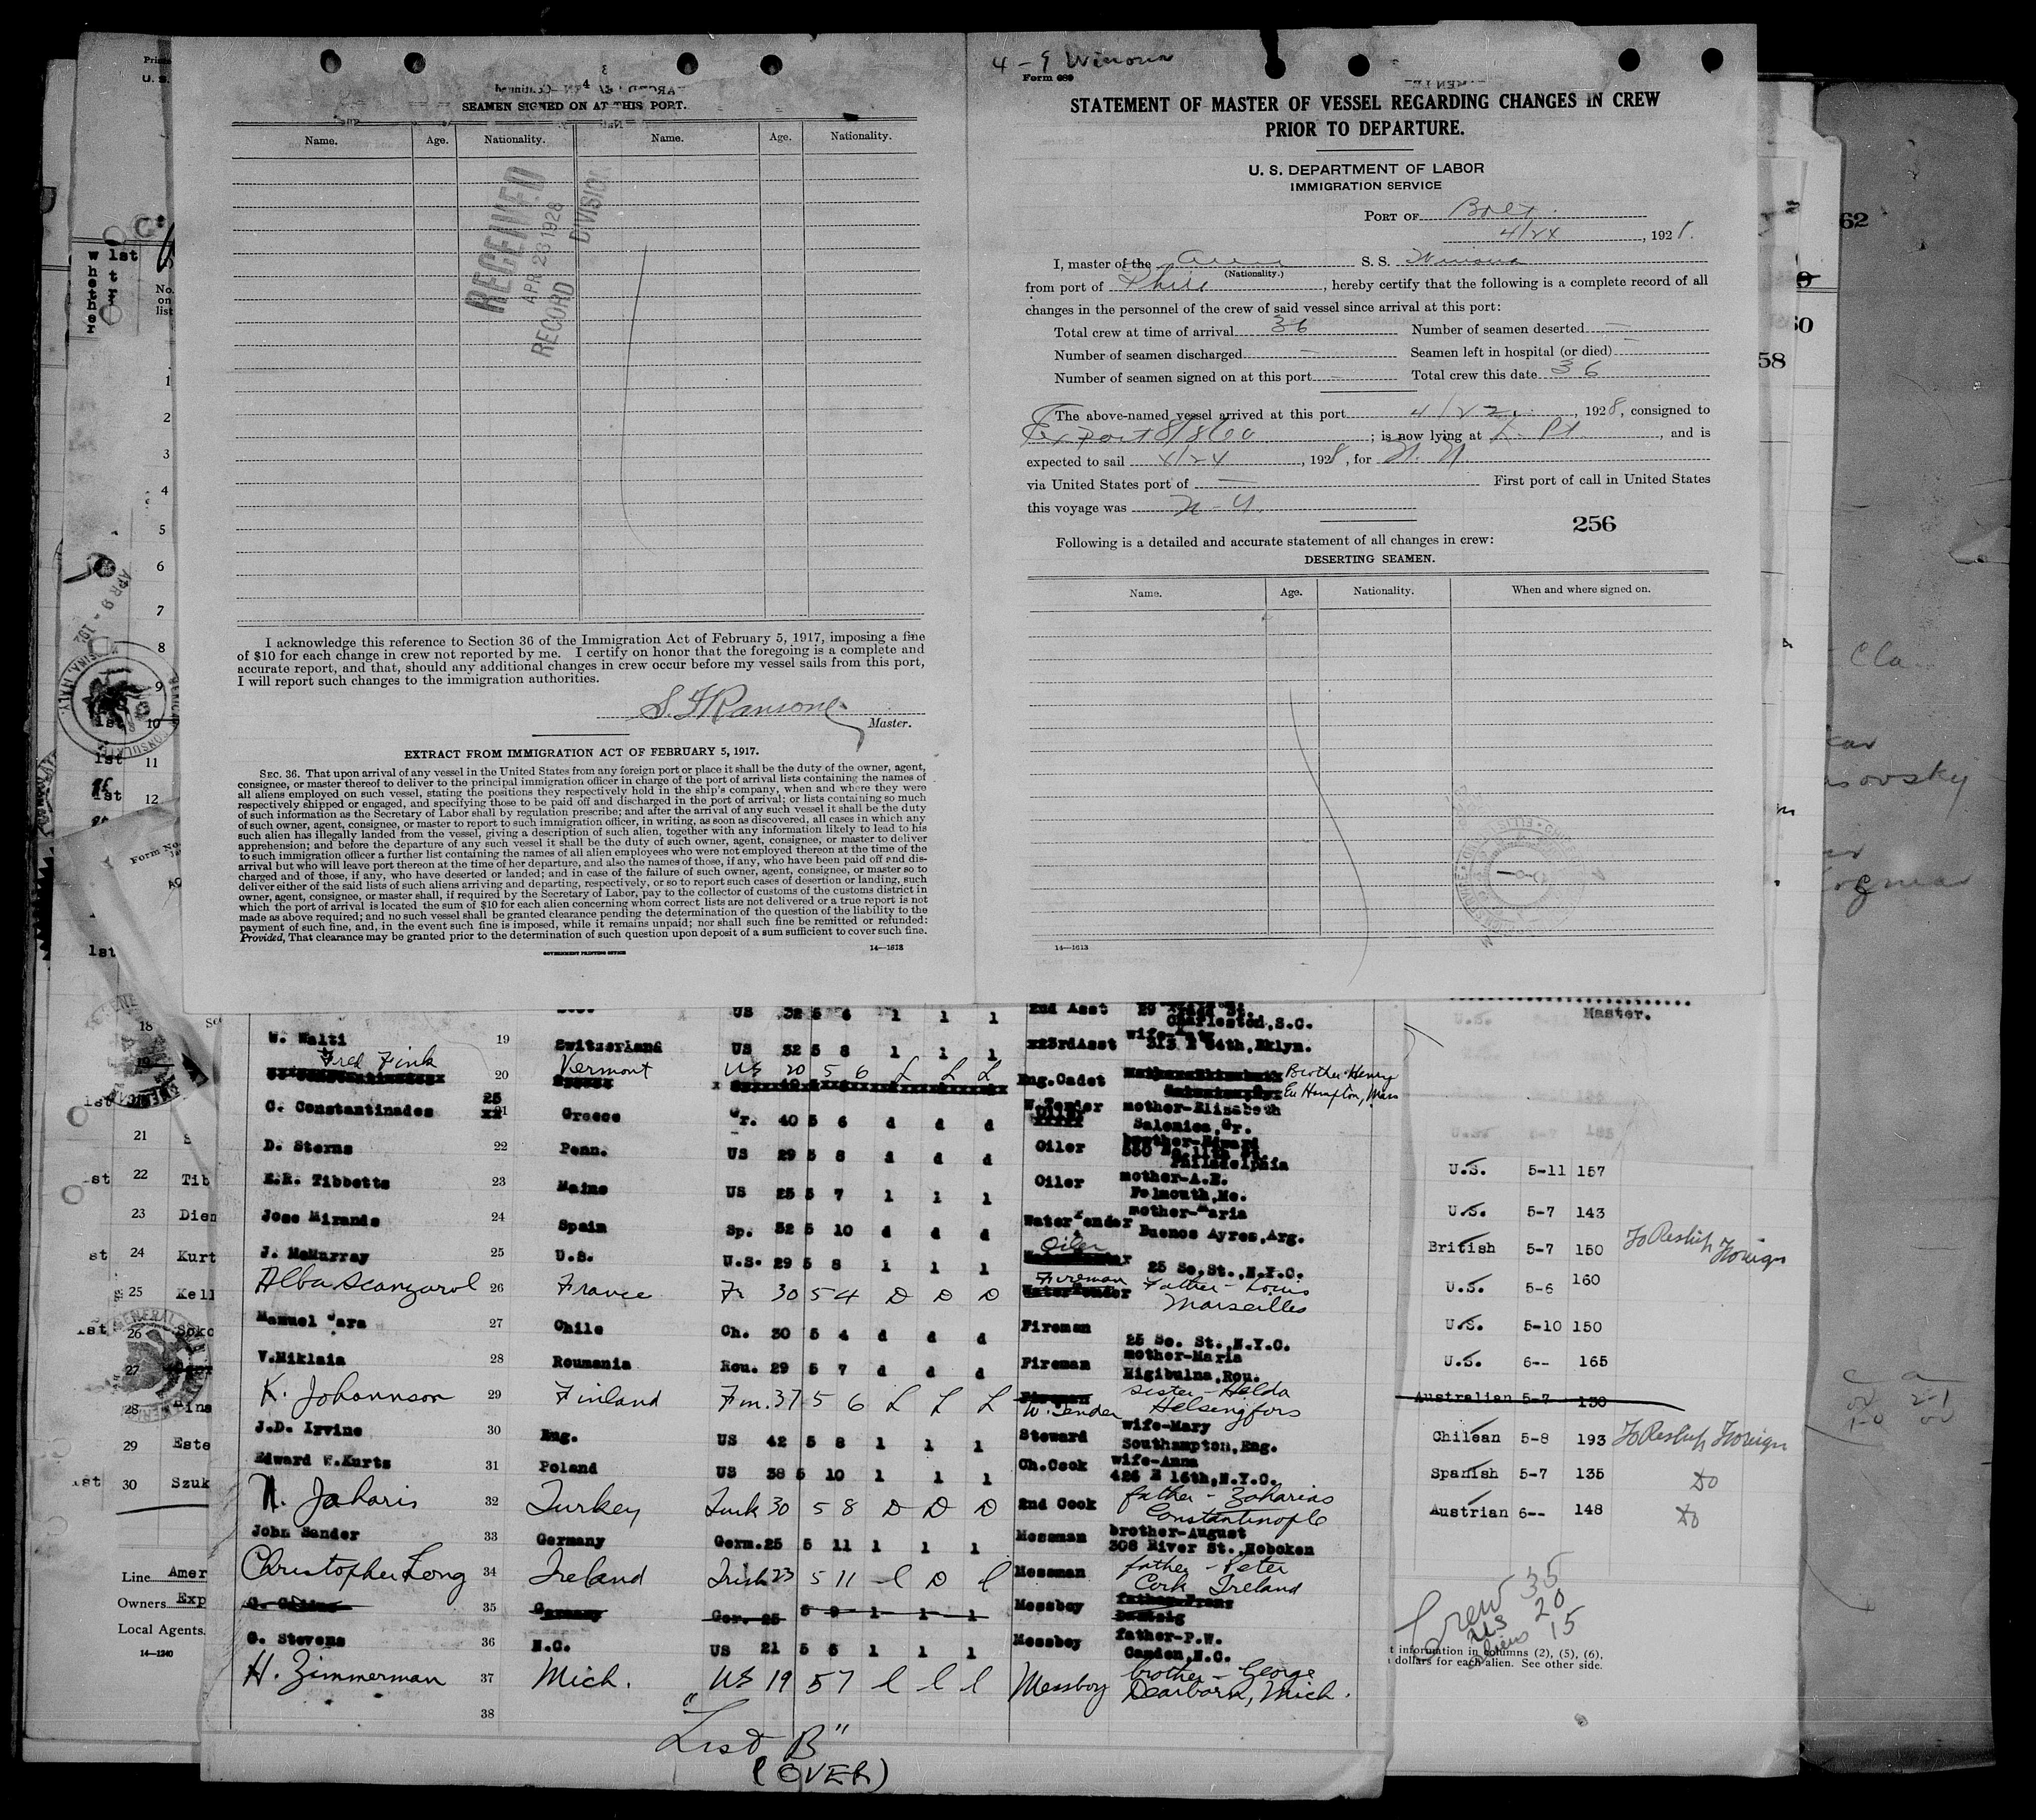 SEAMEN SIGNED ON AT THIS PORT.
Name. Age. Nationality. Name. Age. Nationality.
RECEIVED
APR 26 1928
RECORD DIVISION
I acknowledge this reference to Section 36 of the Immigration Act of February 5, 1917, imposing a fine
of $10 for each change in crew not reported by me. I certify on honor that the foregoing is a complete and
accurate report, and that, should any additional changes in crew occur before my vessel sails from this port,
I will report such changes to the immigration authorities.
S. F Ransone
Master.
EXTRACT FROM IMMIGRATION ACT OF FEBRUARY 5, 1917.
SEC. 36. That upon arrival of any vessel in the United States from any foreign port or place it shall be the duty of the owner, agent,
consignee, or master thereof to deliver to the principal immigration officer in charge of the port of arrival lists containing the names of
all aliens employed on such vessel, stating the positions they respectively hold in the ship's company, when and where they were
respectively shipped or engaged, and specifying those to be paid off and discharged in the port of arrival; or lists containing so much
of such information as the Secretary of Labor shall by regulation prescribe; and after the arrival of any such vessel it shall be the duty
of such owner, agent, consignee, or master to report to such immigration officer, in writing, as soon as discovered, all cases in which any
such alien has illegally landed from the vessel, giving a description of such alien, together with any information likely to lead to his
apprehension; and before the departure of any such vessel it shall be the duty of such owner, agent, consignee, or master to deliver
to such immigration officer a further list containing the names of all alien employees who were not employed thereon at the time of the
arrival but who will leave port thereon at the time of her departure, and also the names of those, if any, who have been paid off and dis-
charged and of those, if any, who have deserted or landed; and in case of the failure of such owner, agent, consignee, or master so to
deliver either of the said lists of such aliens arriving and departing, respectively, or so to report such cases of desertion or landing, such
owner, agent, consignee, or master shall, if required by the Secretary of Labor, pay to the collector of customs of the customs district in
which the port of arrival is located the sum of $10 for each alien concerning whom correct lists are not delivered or a true report is not
made as above required; and no such vessel shall be granted clearance pending the determination of the question of the liability to the
payment of such fine, and, in the event such fine is imposed, while it remains unpaid; nor shall such fine be remitted or refunded:
Provided, That clearance may be granted prior to the determination of such question upon deposit of a sum sufficient to cover such fine.
GOVERNMENT PRINTING OFFICE
14—1613
4 - 9 Winona
Form 689
STATEMENT OF MASTER OF VESSEL REGARDING CHANGES IN CREW
PRIOR TO DEPARTURE.
U. S. DEPARTMENT OF LABOR
IMMIGRATION SERVICE
PORT OF Balt.
4/24, 1928.
I, master of the Amn S. S. Winona
(Nationality.)
from port of Phila, hereby certify that the following is a complete record of all
changes in the personnel of the crew of said vessel since arrival at this port:
Total crew at time of arrival 36 Number of seamen deserted —
Number of seamen discharged — Seamen left in hospital (or died) —
Number of seamen signed on at this port — Total crew this date 36
The above-named vessel arrived at this port 4/22, 1928, consigned to
Export S/S Co; is now lying at L. Pt., and is
expected to sail 4/24, 1928, for N. Y.
via United States port of — First port of call in United States
this voyage was N-Y.
256
Following is a detailed and accurate statement of all changes in crew:
DESERTING SEAMEN.
Name. Age. Nationality. When and where signed on.
14—1613
US 32 5 6 1 1 1 2nd Asst
Charleston, S.C.
W. Walti 19 Switzerland US 52 5 8 1 1 1 3rdAsst wife
313 E 54th, Bklyn.
Fred Fink 20 Vermont US 20 5 6 L L L Eng.Cadet Brother Henry
E. Hampton, Mass
C. Constantinades 21 Greece Gr. 40 5 6 d d d W.Tender mother-Elizabeth
Salonica, Gr.
D. Sterns 22 Penn. US 29 5 8 d d d Oiler brother-Edward
Philadelphia
E.R. Tibbetts 23 Maine US 25 5 7 1 1 1 Oiler mother-A.E.
Falmouth, Me.
Jose Miranda 24 Spain Sp. 32 5 10 d d d Watertender mother-Maria
Buenos Ayres, Arg.
J. McMurray 25 U.S. U.S. 29 5 8 1 1 1 Oiler
25 So. St., N.Y.C.
Alba Scanzarol 26 France Fr 30 5 4 D D D Fireman Father - Louis
Marseilles
Manuel Jara 27 Chile Ch. 30 5 4 d d d Fireman
25 So. St., N.Y.C.
V.Niklaia 28 Roumania Rou. 29 5 7 d d d Fireman mother-Maria
Higibulna, Rou.
K. Johannson 29 Finland Fin. 37 5 6 L L L W. Tender sister - Helda
Helsingfors
J.D. Irvine 30 Eng. US 42 5 8 1 1 1 Steward wife-Mary
Southampton, Eng.
Edward W.Kurtz 31 Poland US 38 5 10 1 1 1 Ch.Cook wife-Anna
426 E 16th, N.Y.C.
N. Jaharis 32 Turkey Turk 30 5 8 D D D 2nd Cook father - Zaharias
Constantinople
John Sander 33 Germany Germ. 25 5 11 1 1 1 Messman brother-August
308 River St., Hoboken
Christopher Long 34 Ireland Irish 23 5 11 l D l Messman father - Peter
Cork Ireland
35 Germany Ger. 25 5 9 1 1 1 Messboy father-Franz
Danzig
G. Stevens 36 N.C. US 21 5 6 1 1 1 Messboy father-P.W.
Camden, N.C.
H. Zimmerman 37 Mich. US 19 5 7 l l l Messboy brother - George
Dearborn, Mich.
38
"List B"
(OVER)
Master.
U.S. 5-11 157
U.S. 5-7 143
British 5-7 150 To Reship Foreign
U.S. 5-6 160
U.S. 5-10 150
U.S. 6-- 165
Australian 5-7 130
Chilean 5-8 193 To Reship Foreign
Spanish 5-7 135 Do
Austrian 6-- 148 Do
Crew 35
US 20
Aliens 15
t information in columns (2), (5), (6).
dollars for each alien. See other side.
No. on list
whether
1st
1
2
3
4
5
6
7
8
9
1st 10
1st 11
1st 12
1st
18
21
22 Tib
23 Dien
24 Kurt
25 Kell
26 Soko
27
28 Hins
29 Este
30 Szuk
Line Amer
Owners Exp
Local Agents
14—1240
62
50
58